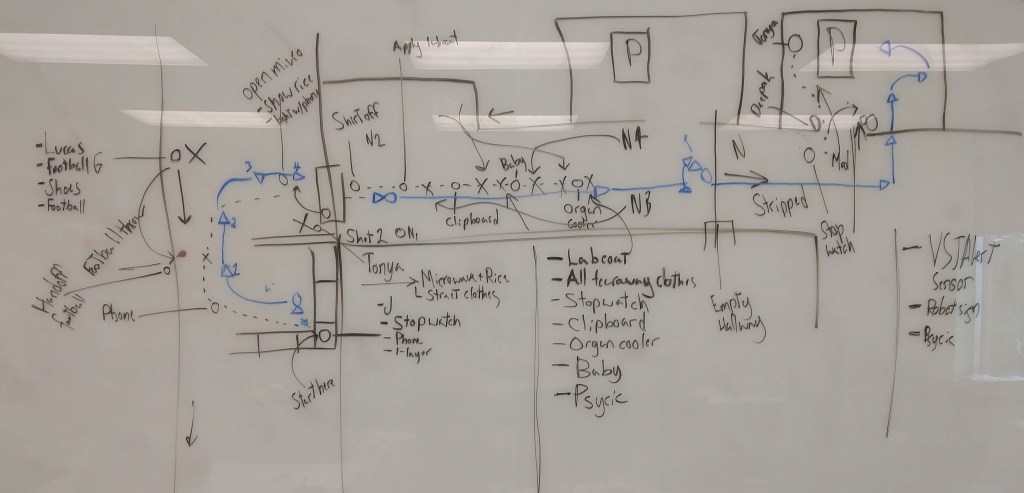 - Lucas
- Football G
- Shoes
- Football
X
Football throw
Handoff
football
Phone
open micro
- Show rice
3
4
2
1
Start here
Shirt off
N2
Apply labcoat
Baby
Clipboard
Organ
cooler
N4
N3
P
P
N
Stripped
Stop
watch
Tonya
Shot 2 ON1
Tonya
Microwave + Rice
Strait clothes
- J
- Stopwatch
- Phone
- 1-layer
- Labcoat
- All tearaway clothes
- Stopwatch
- Clipboard
- Organ cooler
- Baby
- Psycic
Empty
Hallway
Sensor
- Robot sign
- Psycic